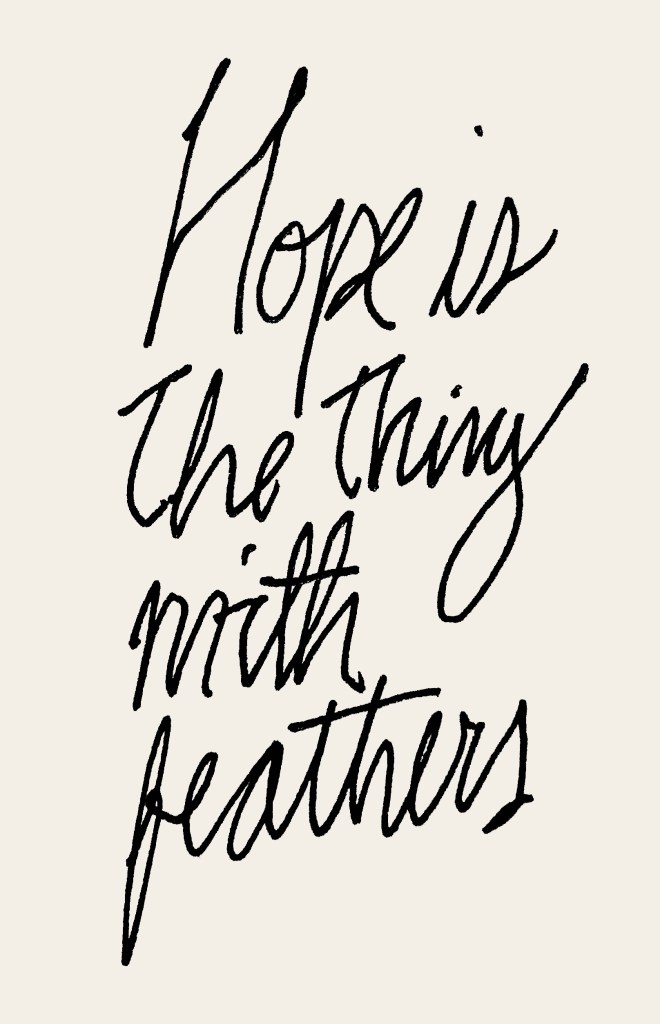 Hope is
the thing
with
feathers